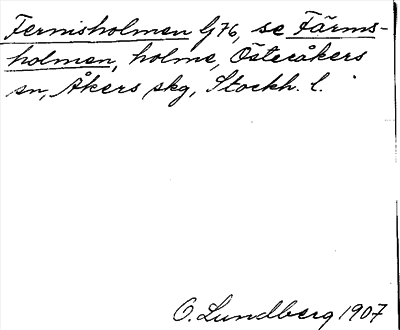 Fernisholmen G76, se Färms-
holmen, holme, Österåkers
sn, Åkers skg, Stockh. l.
O. Lundberg 1907